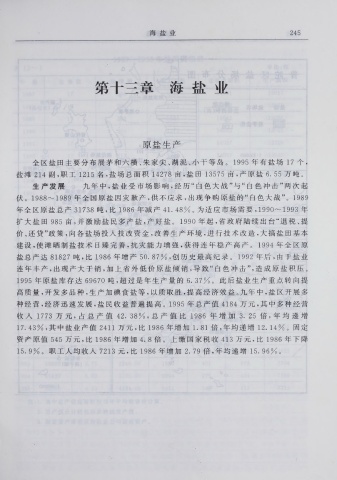 海盐业
245
第十三章 海盐业
原盐生产
全区盐田主要分布展茅和六横、朱家尖、湖泥、小干等岛。1995年有盐场17个,
盐滩214副,职工1215名,盐场总面积14278亩,盐田13575亩,产原盐6.55万吨。
生产发展 九年中,盐业受市场影响,经历“白色大战”与“白色冲击”两次起
伏。1988~1989年全国原盐因灾歉产,供不应求,出现争购原盐的“白色大战”。1989
年全区原盐总产31738吨,比1986年减产41.48%。为适应市场需要,1990~1993年
扩大盐田985亩,并激励盐民多产盐,产好盐。1990年起,省政府陆续出台“退税、提
价、还贷”政策,向各盐场投入技改资金,改善生产环境,进行技术改造,大搞盐田基本
建设,使滩晒制盐技术日臻完善,抗灾能力增强,获得连年稳产高产。1994年全区原
盐总产达81827吨,比1986年增产50.87%,创历史最高纪录。1992年后,由于盐业
连年丰产,出现产大于销,加上省外低价原盐倾销,导致“白色冲击”,造成原盐积压。
1995年原盐库存达69670吨,超过是年生产量的6.37%。此后盐业生产重点转向提
高质量,开发多品种,生产加碘食盐等,以质取胜,提高经济效益。九年中,盐区开展多
种经营,经济迅速发展,盐民收益普遍提高。1995年总产值4184万元,其中多种经营
收入1773万元,占总产值42.38%,总产值比1986年增加3.25倍,年均递增
17.43%,其中盐业产值2411万元,比1986年增加1.81倍,年均递增12.14%。固定
资产原值545万元,比1986年增加4.8倍。上缴国家税收413万元,比1986年下降
15.9%。职工人均收入7213元,比1986年增加2.79倍,年均递增15.96%。